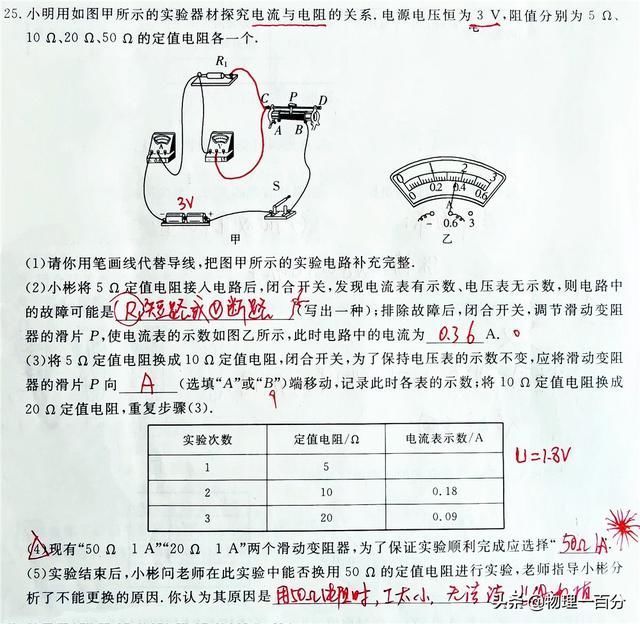 25.小明用如图甲所示的实验器材探究电流与电阻的关系.电源电压恒为3 V,阻值分别为5 Ω、
10 Ω、20 Ω、50 Ω的定值电阻各一个.
R₁
C P D
A B
A
V
3V
S
甲
0 1 2 3
0 0.2 0.4 0.6
A
- 0.6 3
乙
(1)请你用笔画线代替导线,把图甲所示的实验电路补充完整.
(2)小彬将5 Ω定值电阻接入电路后,闭合开关,发现电流表有示数、电压表无示数,则电路中
的故障可能是 R₁短路或Ⓥ断路 (写出一种);排除故障后,闭合开关,调节滑动变阻
器的滑片P,使电流表的示数如图乙所示,此时电路中的电流为 0.36 A.
(3)将5 Ω定值电阻换成10 Ω定值电阻,闭合开关,为了保持电压表的示数不变,应将滑动变阻
器的滑片P向 A (选填“A”或“B”)端移动,记录此时各表的示数;将10 Ω定值电阻换成
20 Ω定值电阻,重复步骤(3).
实验次数 定值电阻/Ω 电流表示数/A
1 5
2 10 0.18
3 20 0.09
U=1.8V
(4)现有“50 Ω 1 A”“20 Ω 1 A”两个滑动变阻器,为了保证实验顺利完成应选择“ 50Ω 1A.
(5)实验结束后,小彬问老师在此实验中能否换用50 Ω的定值电阻进行实验,老师指导小彬分
析了不能更换的原因.你认为其原因是 用50Ω电阻时,I太小,无法读
头条@物理一百分